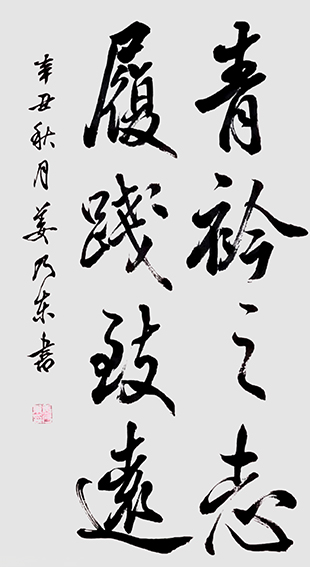 青衿之志
履践致远
辛丑秋月姜乃东书